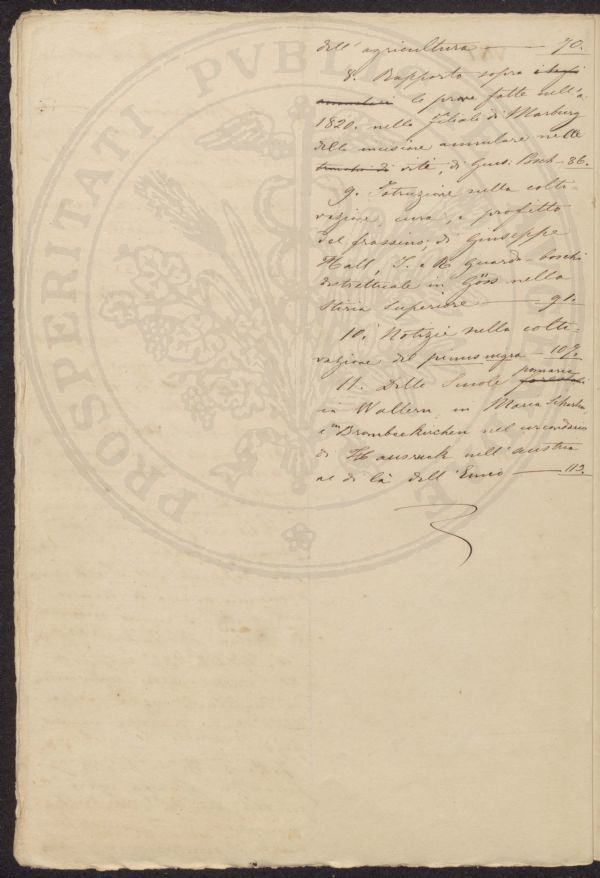 dell'agricultura — 70.
8. Rapporto sopra i tagli
annulari le prove fatte nell'a.
1820. nella filiale di Marburg
della incisione annulare nelle
tronchi di vite, di Gius. Bsch — 86.
9. Istruzione sulla colti-
vazione, cura, e profitto
del frassino, di Giuseppe
Hall, I. e R. guarda-boschi
distrettuale in Göss nella
Stiria Superiore — 91.
10. Notizie sulla colti-
vazione del pinus nigra — 107.
11. Delle Scuole pomarie
in Wallern, in Maria Scharten
e in Brambeckirchen nel circondario
di Hausruck nell'Austria
al di là dell'Enns — 112.
PROSPERITATI PUBLI